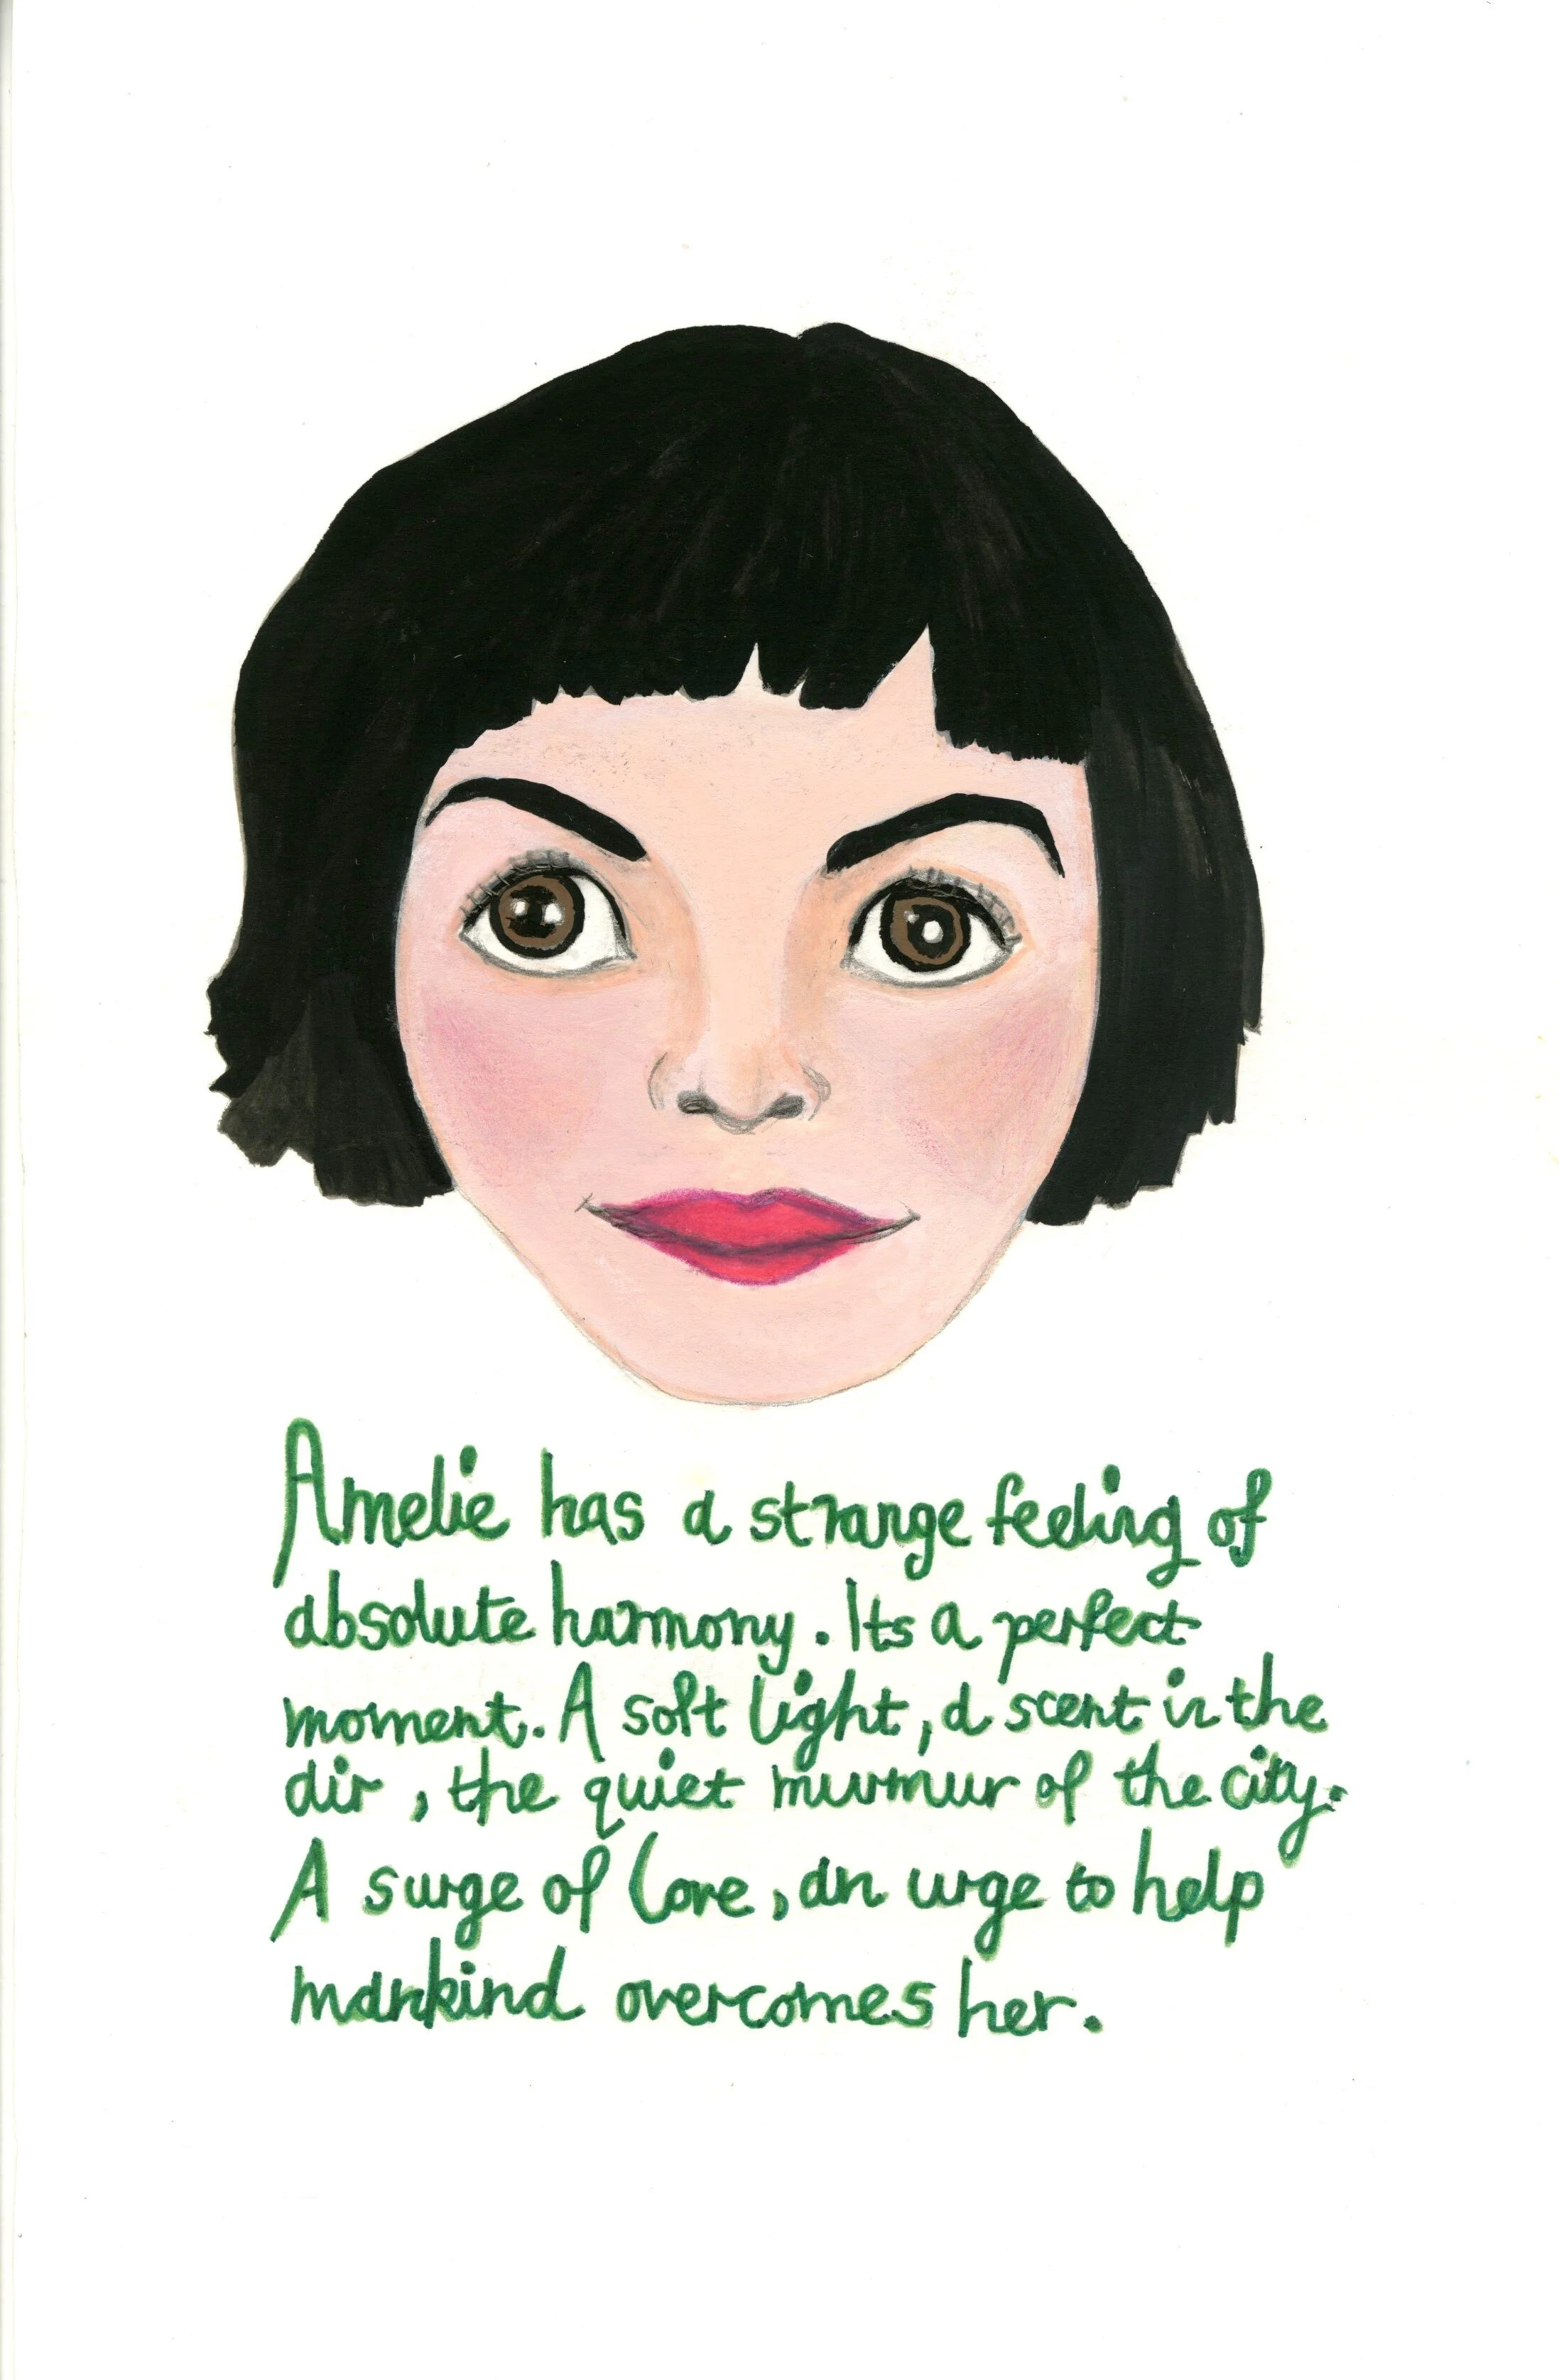 Amelie has a strange feeling of
absolute harmony. Its a perfect
moment. A soft light, a scent in the
air, the quiet murmur of the city.
A surge of love, an urge to help
mankind overcomes her.